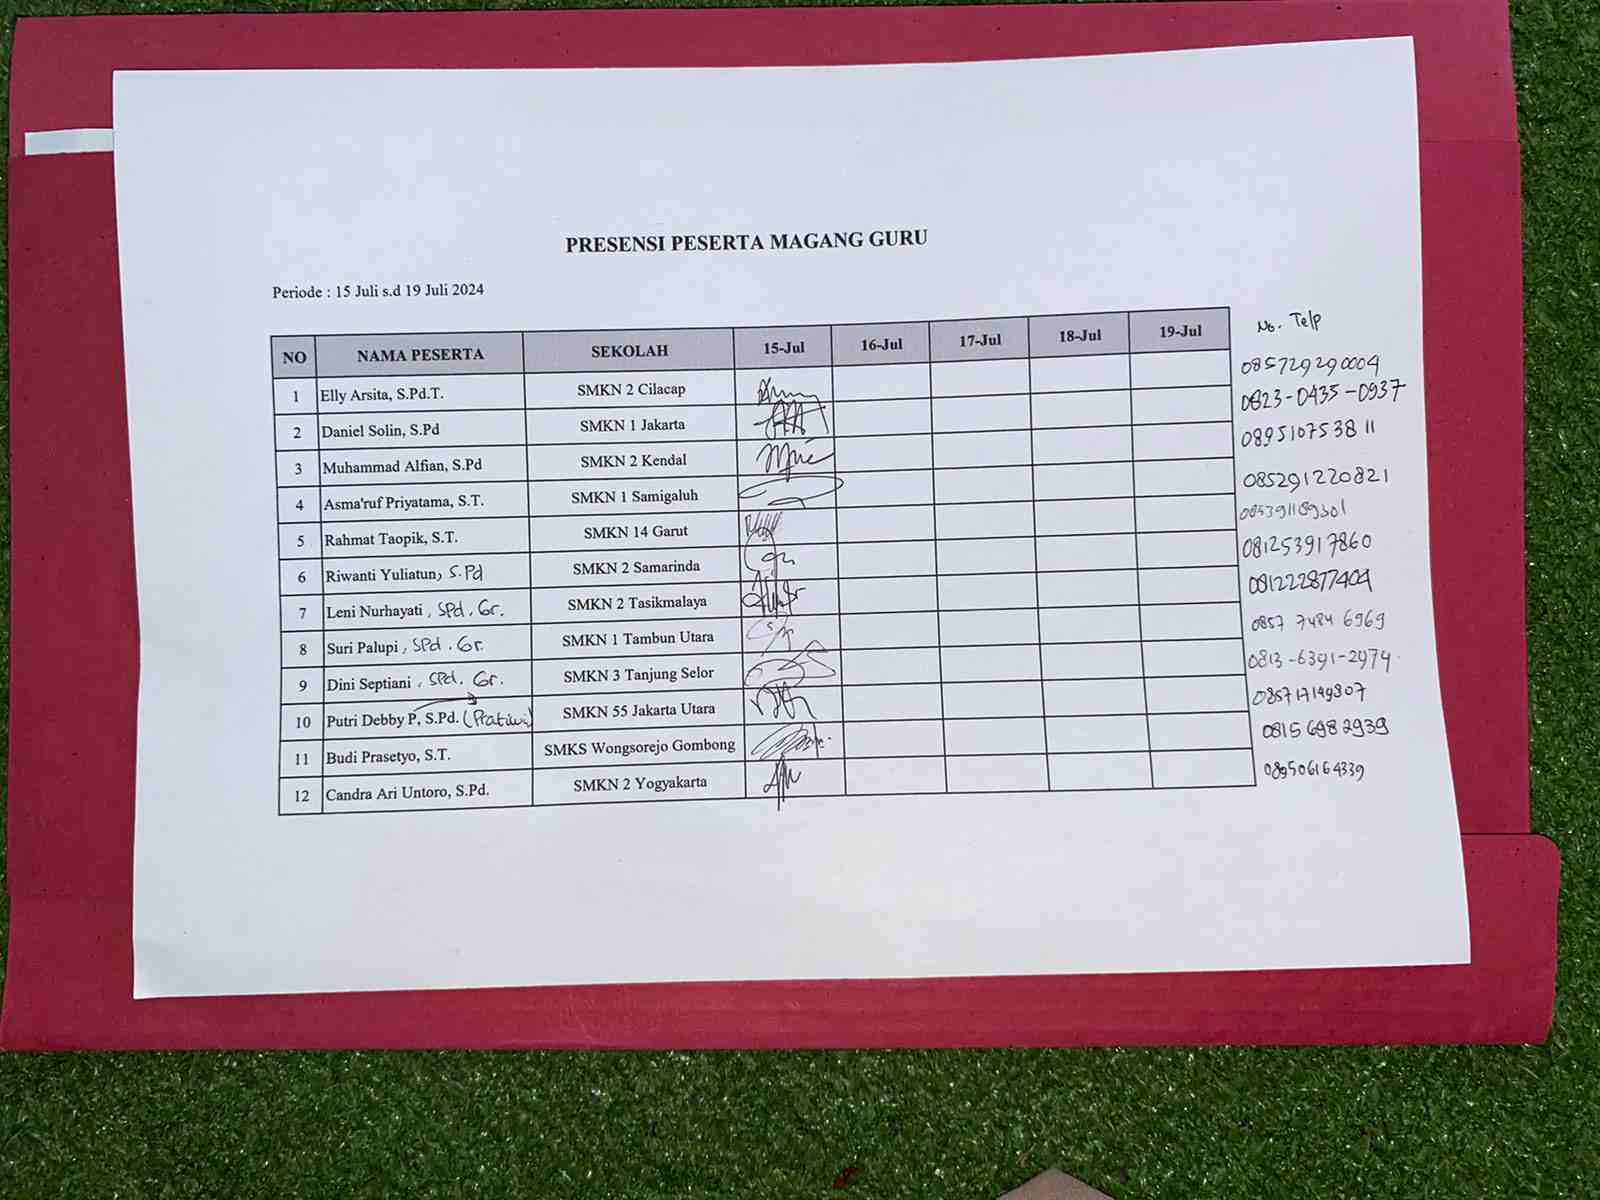 PRESENSI PESERTA MAGANG GURU
Periode : 15 Juli s.d 19 Juli 2024
NO NAMA PESERTA SEKOLAH 15-Jul 16-Jul 17-Jul 18-Jul 19-Jul No. Telp
1 Elly Arsita, S.Pd.T. SMKN 2 Cilacap 085729290004
2 Daniel Solin, S.Pd SMKN 1 Jakarta 0823-0435-0937
3 Muhammad Alfian, S.Pd SMKN 2 Kendal 089510753811
4 Asma'ruf Priyatama, S.T. SMKN 1 Samigaluh 085291220821
5 Rahmat Taopik, S.T. SMKN 14 Garut
6 Riwanti Yuliatun, S.Pd SMKN 2 Samarinda 081253917860
7 Leni Nurhayati, SPd. Gr. SMKN 2 Tasikmalaya 081222877404
8 Suri Palupi, SPd. Gr. SMKN 1 Tambun Utara 0857 7484 6969
9 Dini Septiani, SPd. Gr. SMKN 3 Tanjung Selor 0813-6391-2974
10 Putri Debby P, S.Pd. (Pratiwi) SMKN 55 Jakarta Utara 085717149807
11 Budi Prasetyo, S.T. SMKS Wongsorejo Gombong 0815 6982939
12 Candra Ari Untoro, S.Pd. SMKN 2 Yogyakarta 089506164339